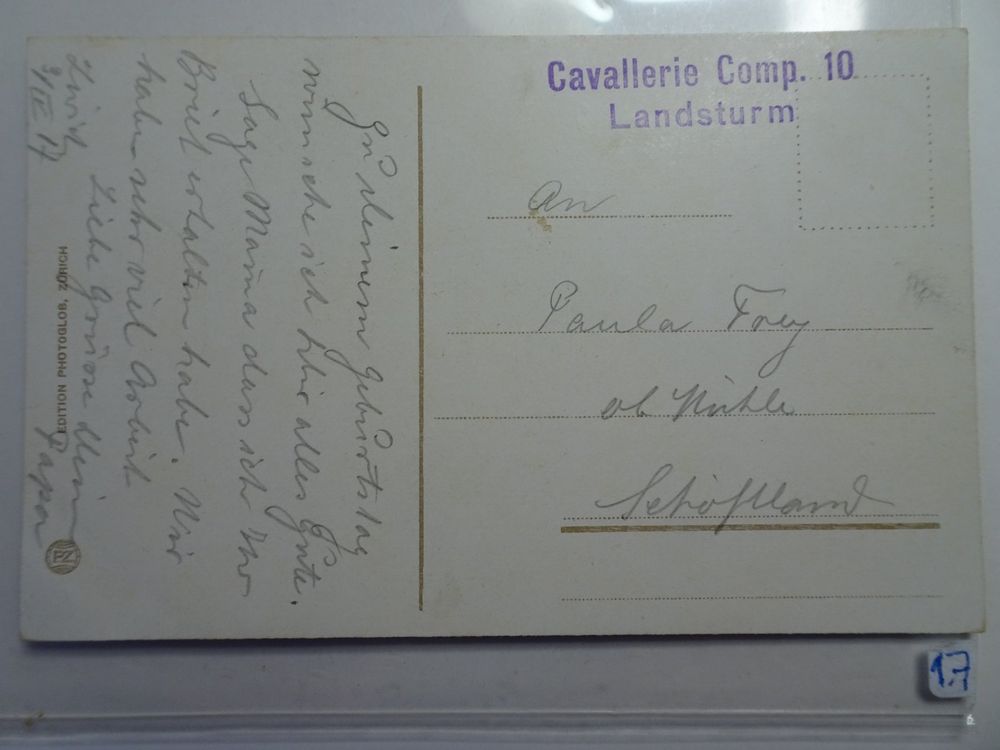 Cavallerie Comp. 10
Landsturm
An
Paula Frey
ob Mühle
Schöftland
Zu deinem Geburtstag
wünsche ich dir alles Gute.
Sage Mama dass ich Ihr
Brief erhalten habe. Wir
haben sehr viel Arbeit
Liebe Grüsse dein
Papa
Zürich
EDITION PHOTOGLOB, ZÜRICH
17